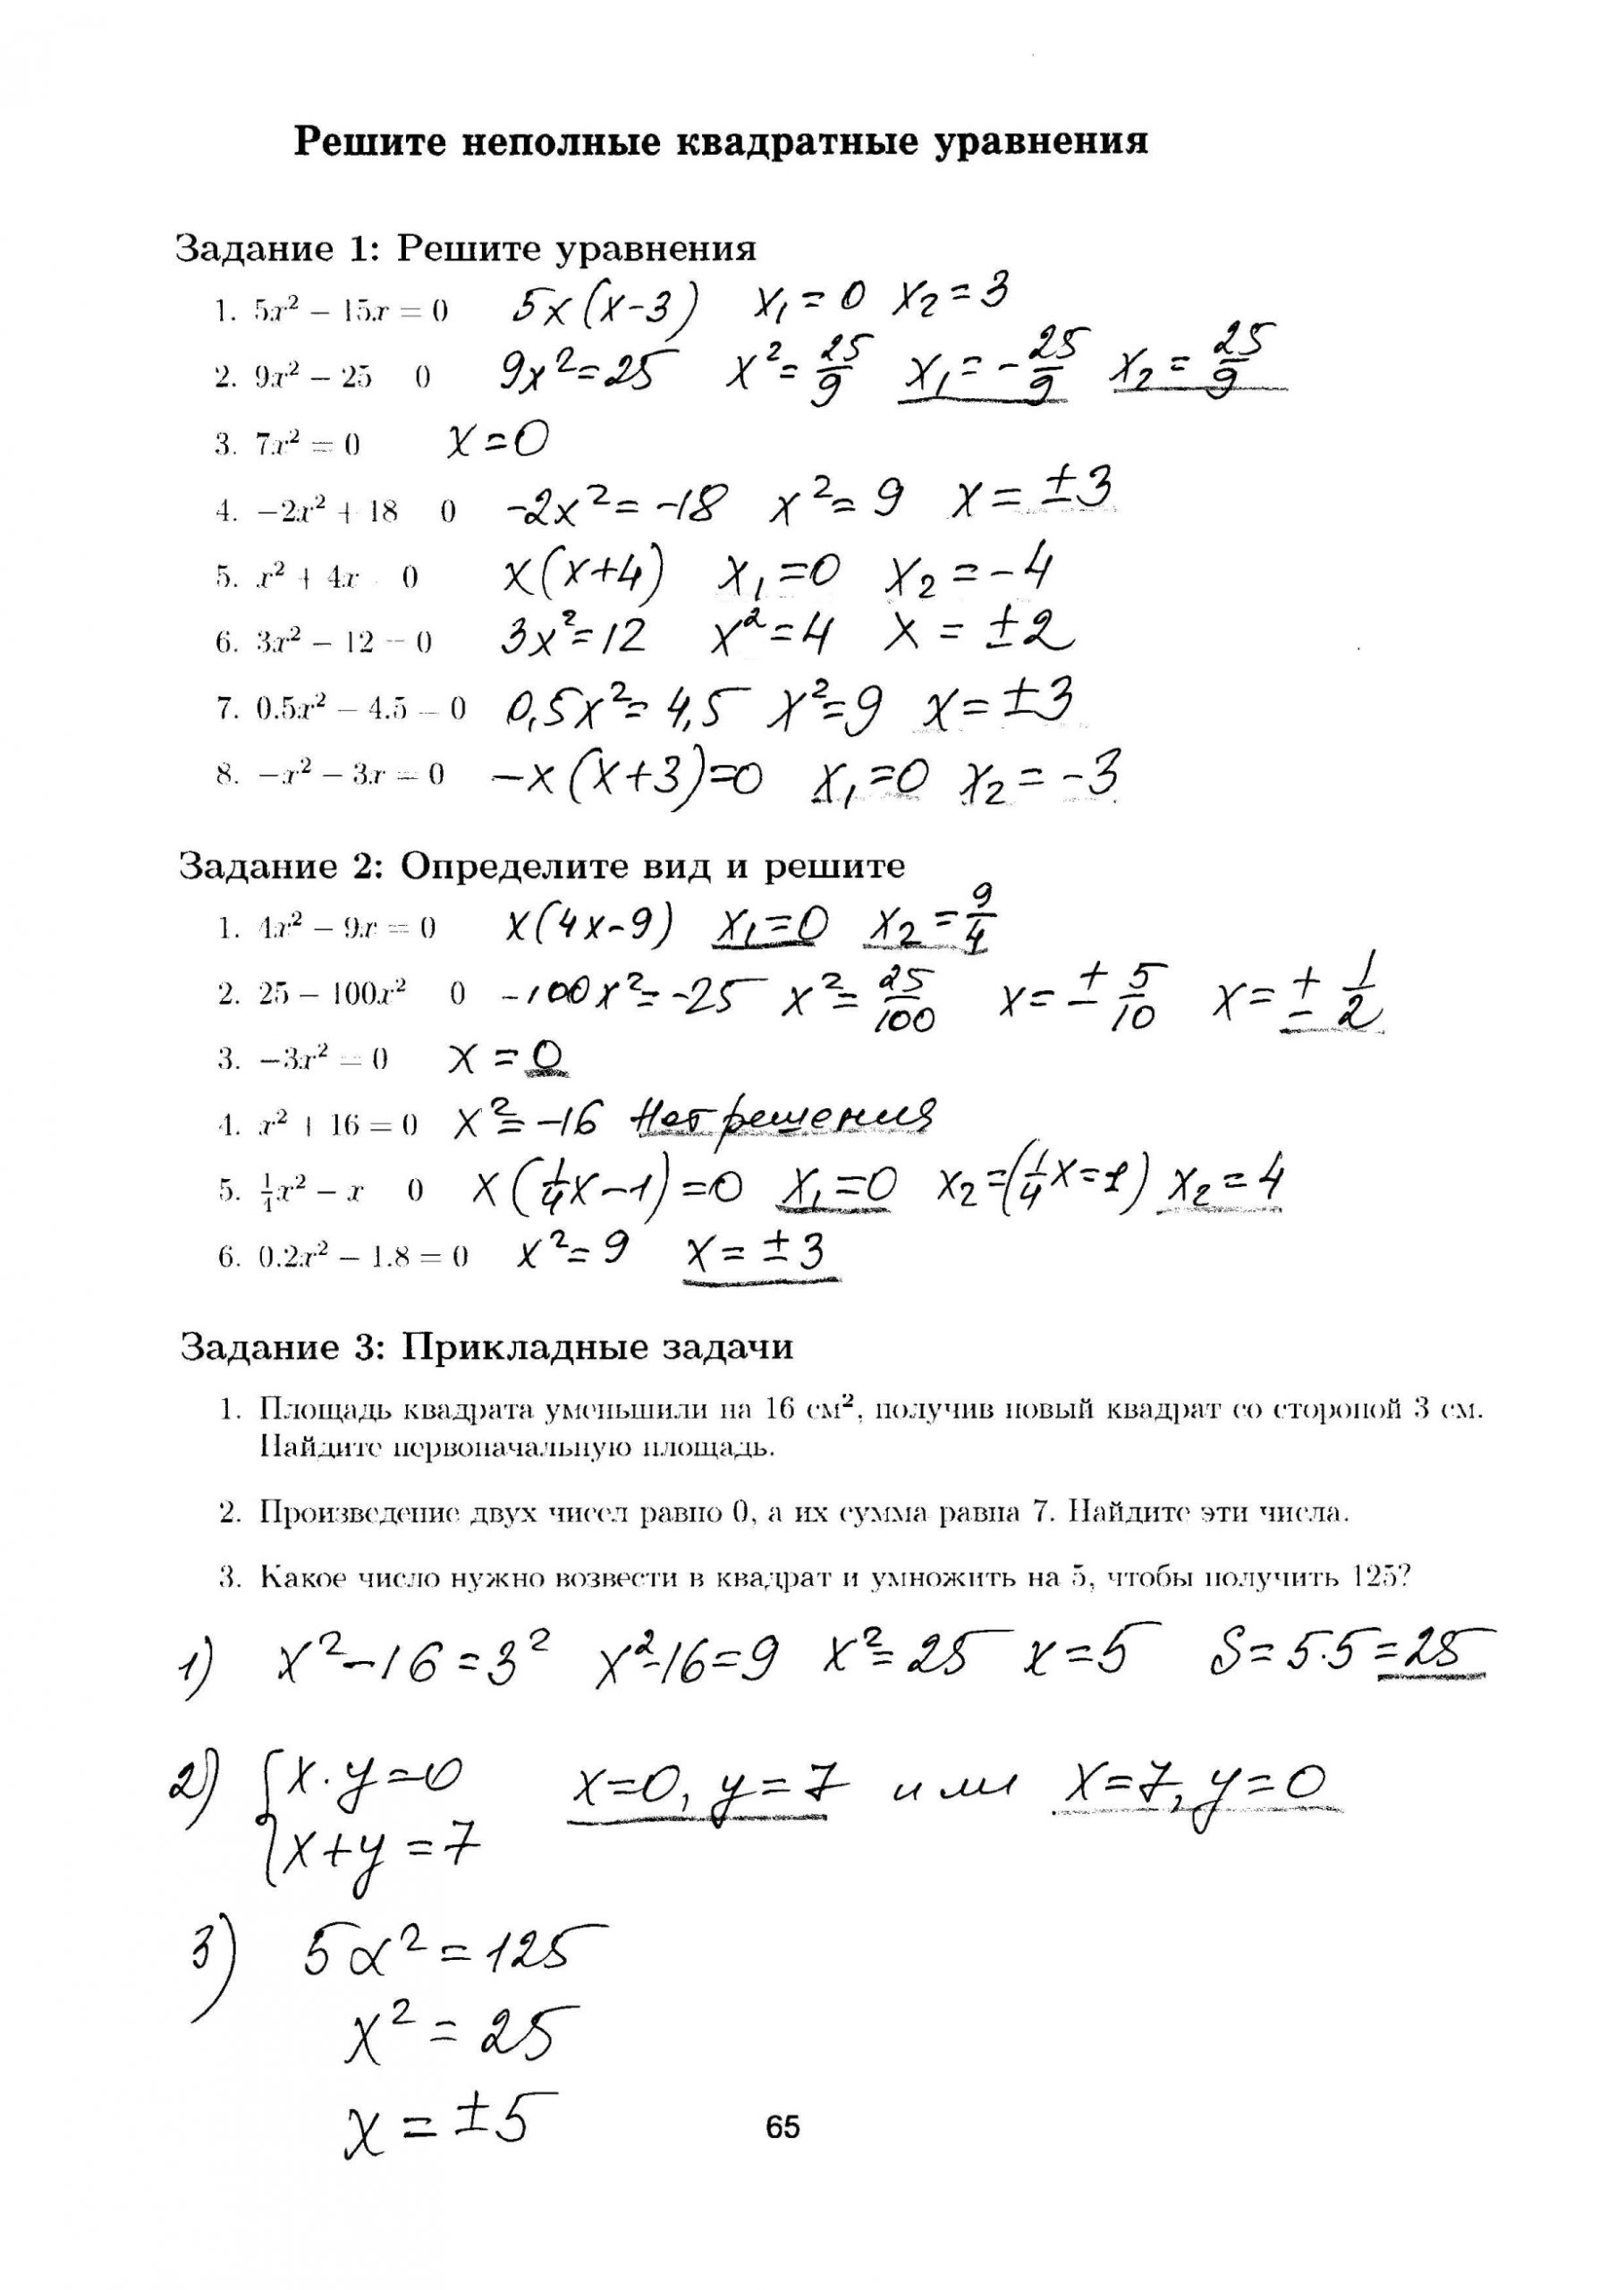 Решите неполные квадратные уравнения
Задание 1: Решите уравнения
1. 5x² − 15x = 0 5x(x-3) x₁=0 x₂=3
2. 9x² − 25 0 9x²=25 x²=25/9 x₁=-25/9 x₂=25/9
3. 7x² = 0 x=0
4. −2x² + 18 0 -2x²=-18 x²=9 x=±3
5. x² + 4x 0 x(x+4) x₁=0 x₂=-4
6. 3x² − 12 = 0 3x²=12 x²=4 x=±2
7. 0.5x² − 4.5 = 0 0,5x²=4,5 x²=9 x=±3
8. −x² − 3x = 0 -x(x+3)=0 x₁=0 x₂=-3
Задание 2: Определите вид и решите
1. 4x² − 9x = 0 x(4x-9) x₁=0 x₂=9/4
2. 25 − 100x² 0 -100x²=-25 x²=25/100 x=±5/10 x=±1/2
3. −3x² = 0 x=0
4. x² + 16 = 0 x²=-16 Нет решения
5. ¼x² − x 0 x(¼x-1)=0 x₁=0 x₂=(¼x=1) x₂=4
6. 0.2x² − 1.8 = 0 x²=9 x=±3
Задание 3: Прикладные задачи
1. Площадь квадрата уменьшили на 16 см², получив новый квадрат со стороной 3 см.
Найдите первоначальную площадь.
2. Произведение двух чисел равно 0, а их сумма равна 7. Найдите эти числа.
3. Какое число нужно возвести в квадрат и умножить на 5, чтобы получить 125?
1) x²-16=3² x²-16=9 x²=25 x=5 S=5·5=25
2) {x·y=0 x=0, y=7 или x=7, y=0
x+y=7
3) 5x²=125
x²=25
x=±5
65